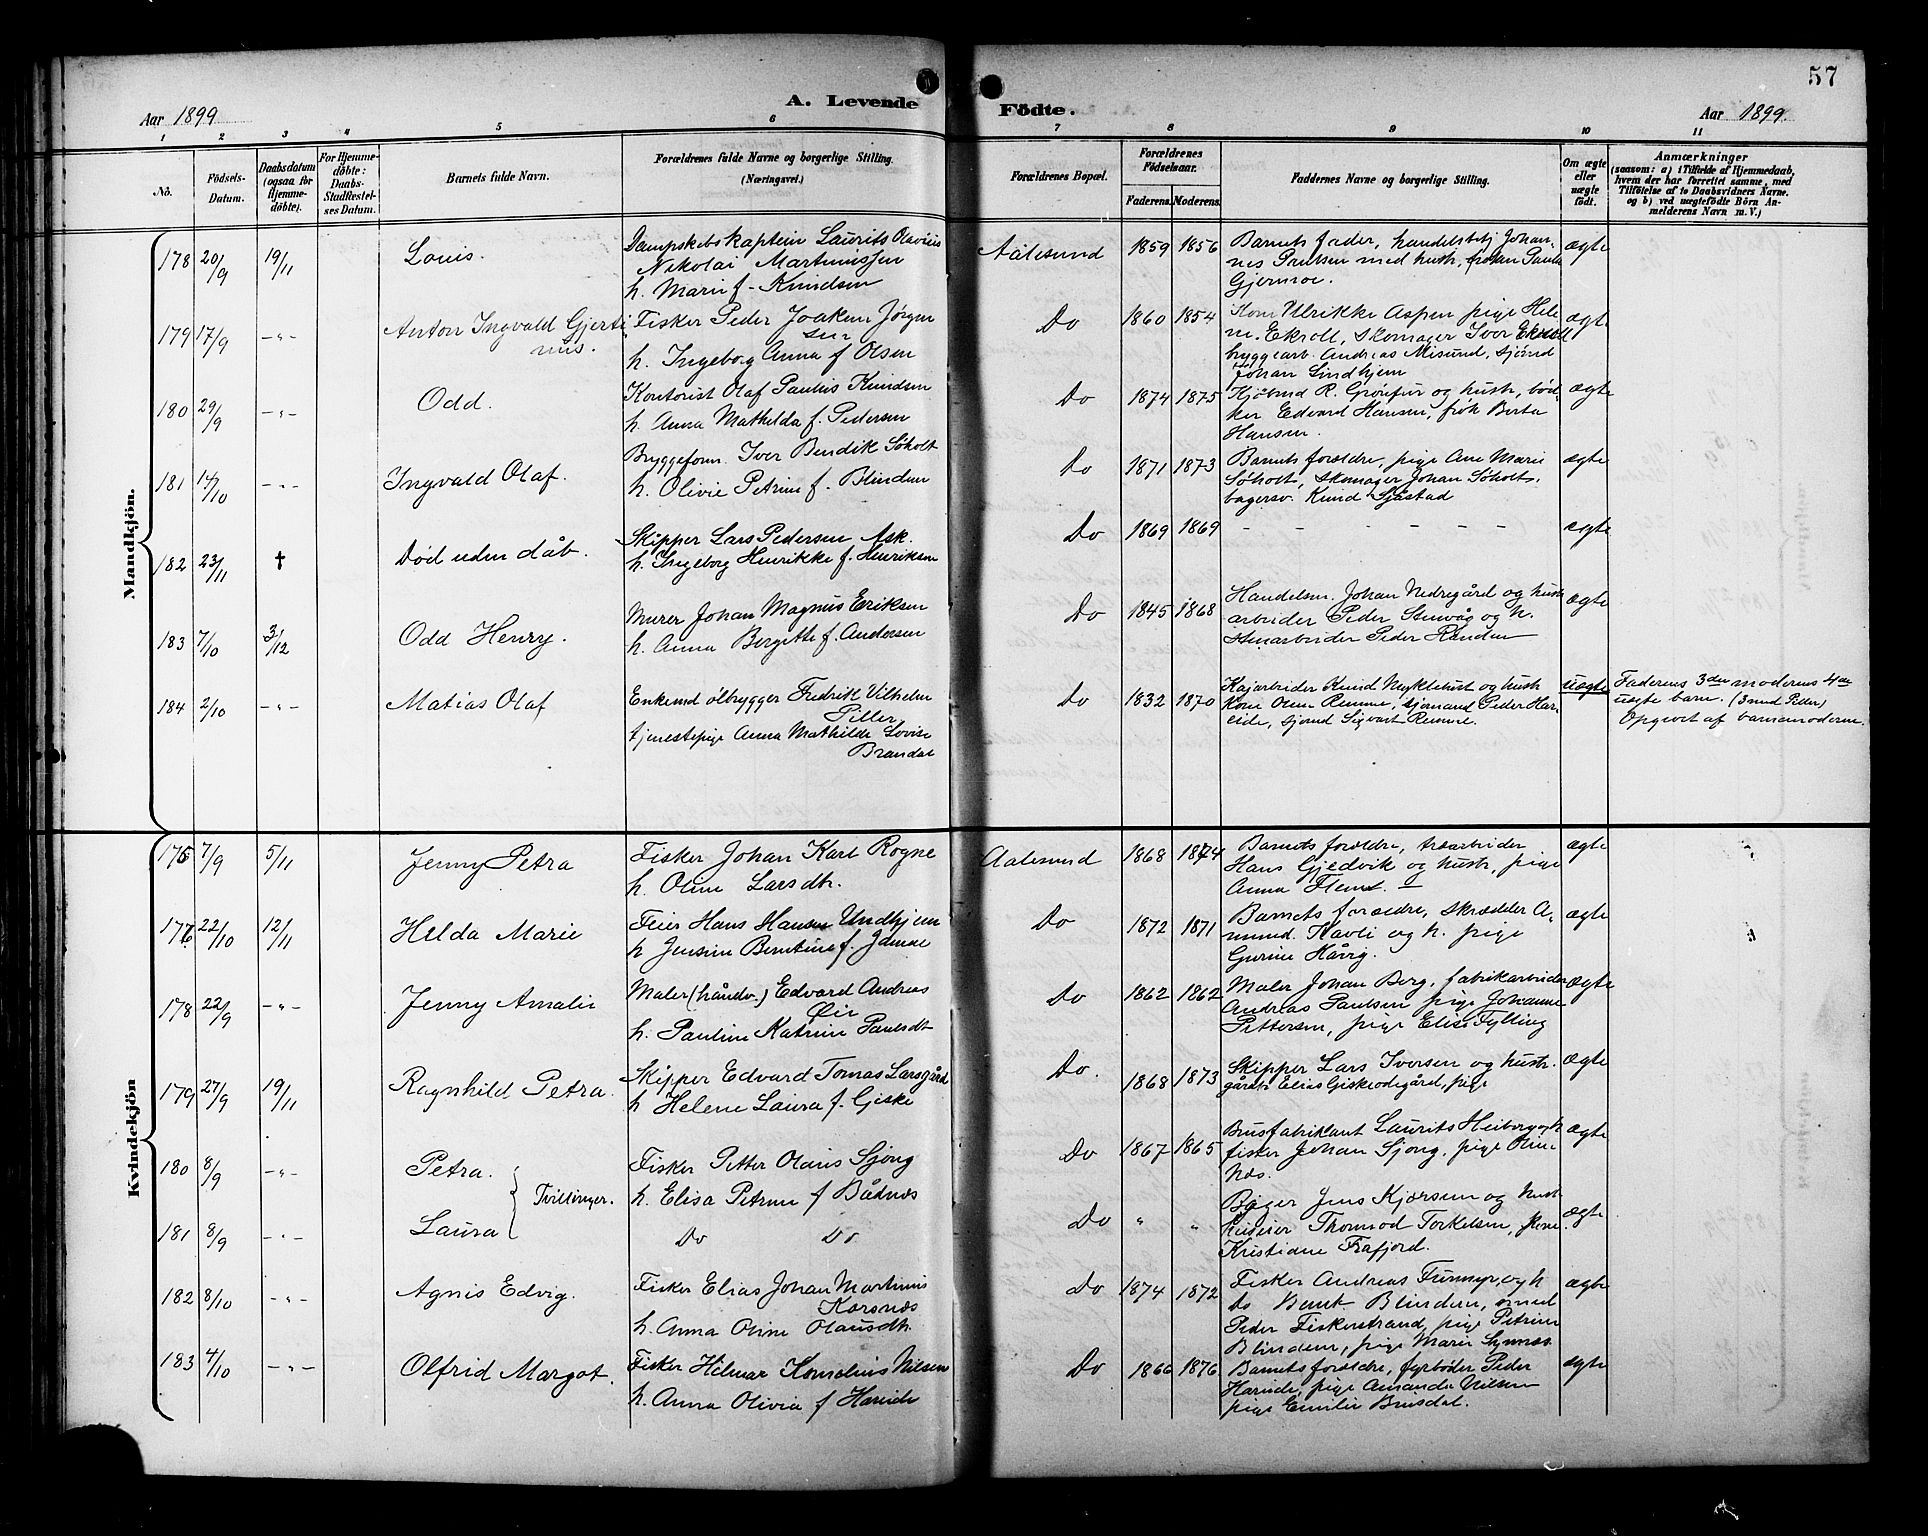 57
A. Levende Födte.
Aar 1899
Aar 1899.
1 2 3 4 5 6 7 8 9 10 11
No.
Födsels-Datum.
Daabsdatum (ogsaa for Hjemme-döbte).
For Hjemme-döbte: Daabs-Stadfæstel-ses Datum.
Barnets fulde Navn.
Forældrenes fulde Navne og borgerlige Stilling.
(Næringsvei.)
Forældrenes Bopæl.
Forældrenes Födselsaar.
Faderens. Moderens.
Faddernes Navne og borgerlige Stilling.
Om ægte eller uægte født.
Anmærkninger
(saasom: a) i Tilfælde af Hjemmedaab,
hvem der har forrettet samme, med
Tilföielse af to Daabsvidners Navne.
og b) ved uægtefödte Börn An-
melderens Navn m. V.)
Mandkjön.
178 20/9 19/11 Louis. Dampskibskaptein Laurits Olavius
Nikolai Martinussen
h. Marie f. Knudsen
Aalesund 1859 1856 Barnets fader, handelsbetj Johan-
nes Poulsen med hustr, frøken Paula
Gjermoe. ægte
179 17/9 -"- Anton Ingvald Gjerti
nus.
Fisker Peder Joakim Jörgen
sen
h. Ingeborg Anna f Olsen
Do 1860 1854 Kone Ulrikke Aspen pige Hele
ne Ekroll, Skomager Iver Ekroll
byggearb. Andreas Misund, sjömd
Johan Lindhjem ægte
180 29/9 -"- Odd. Kontorist Olaf Paulus Knudsen
h. Anna Mathilda f. Pedersen
Do 1874 1875 Kjöbmd R. og hustr, bød
ker Edvard Hansen, frök Berta
Hansen. ægte
181 14/10 -"- Ingvald Olaf. Byggeform. Iver Bendik Söholt
h. Olivie Petrine f. Blindem
Do 1871 1873 Barnets forældre, pige Ane Marie
Söholt, Skomager Johan Söholt,
bagersv. Knud Sjåstad ægte
182 23/11 † Död uden dåb. Skipper Lars Pedersen Ask.
h. Ingeborg Henrikke f. Henriksen
Do 1869 1869 - - - - - - - ægte
183 7/10 3/12 Odd Henry. Murer Johan Magnus Eriksen
h. Anna Bergitte f. Andersen
Do 1845 1868 Handelsm. Johan Nedregård og hustr
arbeider Peder Stenvåg og h.
Stenarbeider Peder Randen ægte
184 2/10 -"- Matias Olaf Enkemd ölbrygger Fredrik Vilhelm
Piller
tjenestepige Anna Mathilde Lovise
Brandal
Do 1832 1870 Kajarbeider Knud Myklebust og hustr
Kone Oline Remme, sjömand Peder Har-
eide, sjömd Sigvart Remme. uægte
Faderens 3die moderens 4de
uægte barn. (3 med Peder)
Opgivet af barnemoderen.
Kvindekjön
175 7/9 5/11 Jenny Petra Fisker Johan Karl Rogne
h. Oline Larsdtr.
Aalesund 1868 1874 Barnets forældre, træarbeider
Hans Gjedvik og hustr, pige
Anna Flem. ægte
176 22/10 12/11 Helda Marie Feier Hans Hansen Undhjem
h Jensine Berntine f.
Do 1872 1871 Barnets forældre, Skrædder A-
mund Havli og h. pige
Gurine ægte
178 22/9 -"- Jenny Amalie Maler (håndv.) Edvard Andreas
Øie
h. Pauline Katrine Paulsdtr
Do 1862 1862 Maler Johan Berg, fabrikarbeider
Andreas Paulsen pige Johanne
Pettersen, pige Elise Fylling ægte
179 27/9 19/11 Ragnhild Petra. Skipper Edvard Tomas Larsgård
h Helene Laura f. Giske
Do. 1868 1873 Skipper Lars Iversen og hustr.
gårdb Elias Giskeödegård, pige ægte
180 8/9 -"- Petra. Fisker Petter Olaus Sjöng
h. Elisa Petrine f Bådnæs
Do 1867 1865 Brusfabrikant Laurits Heiberg og h
fisker Johan Sjöng, pige Oline
Næs. ægte
Tvillinger.
181 8/9 -"- Laura Do Do
Do " " Bager Jens Kjærsem og hustr
Thormod Torkelsen, kone
Kristiane Frafjord. ægte
182 8/10 -"- Agnis Edvig. Fisker Elias Johan Martinus
Korsnæs
h. Anna Oline Olausdtr.
Do 1874 1872 Fisker Andreas Furmyr, og h
do Bernt Blindem, smed
Peder Fiskerstrand, pige Petrine
Blindem, pige Marie Synnæs ægte
183 4/10 -"- Olfrid Margot. Fisker Hilmar Kornelius Nilsen
h. Anna Olivia f Hareide
Do 1866 1876 Barnets forældre, fyrböder Peder
Hareide, pige Amanda Nilsen
pige Emilie Brusdal. ægte